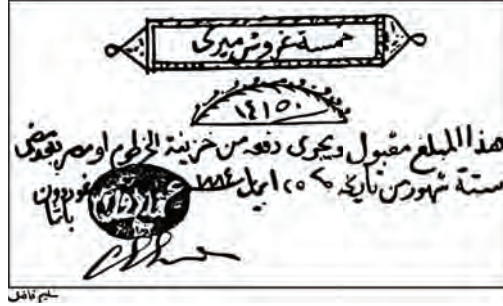 خمسة غروش ميرى
١٤١٥٠
هذا المبلغ مقبول ويجرى دفعه من خزينة الخرطوم او مصر بعد مضى
ستة شهور من تاريخه ٢٥ ابريل ١٨٨٤
غوردون
باشا
سليم قاضل